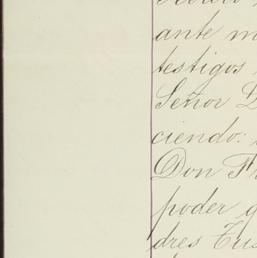 ante m
testigos
Señor D
ciendo:
Don Fr
poder q
dres Trus